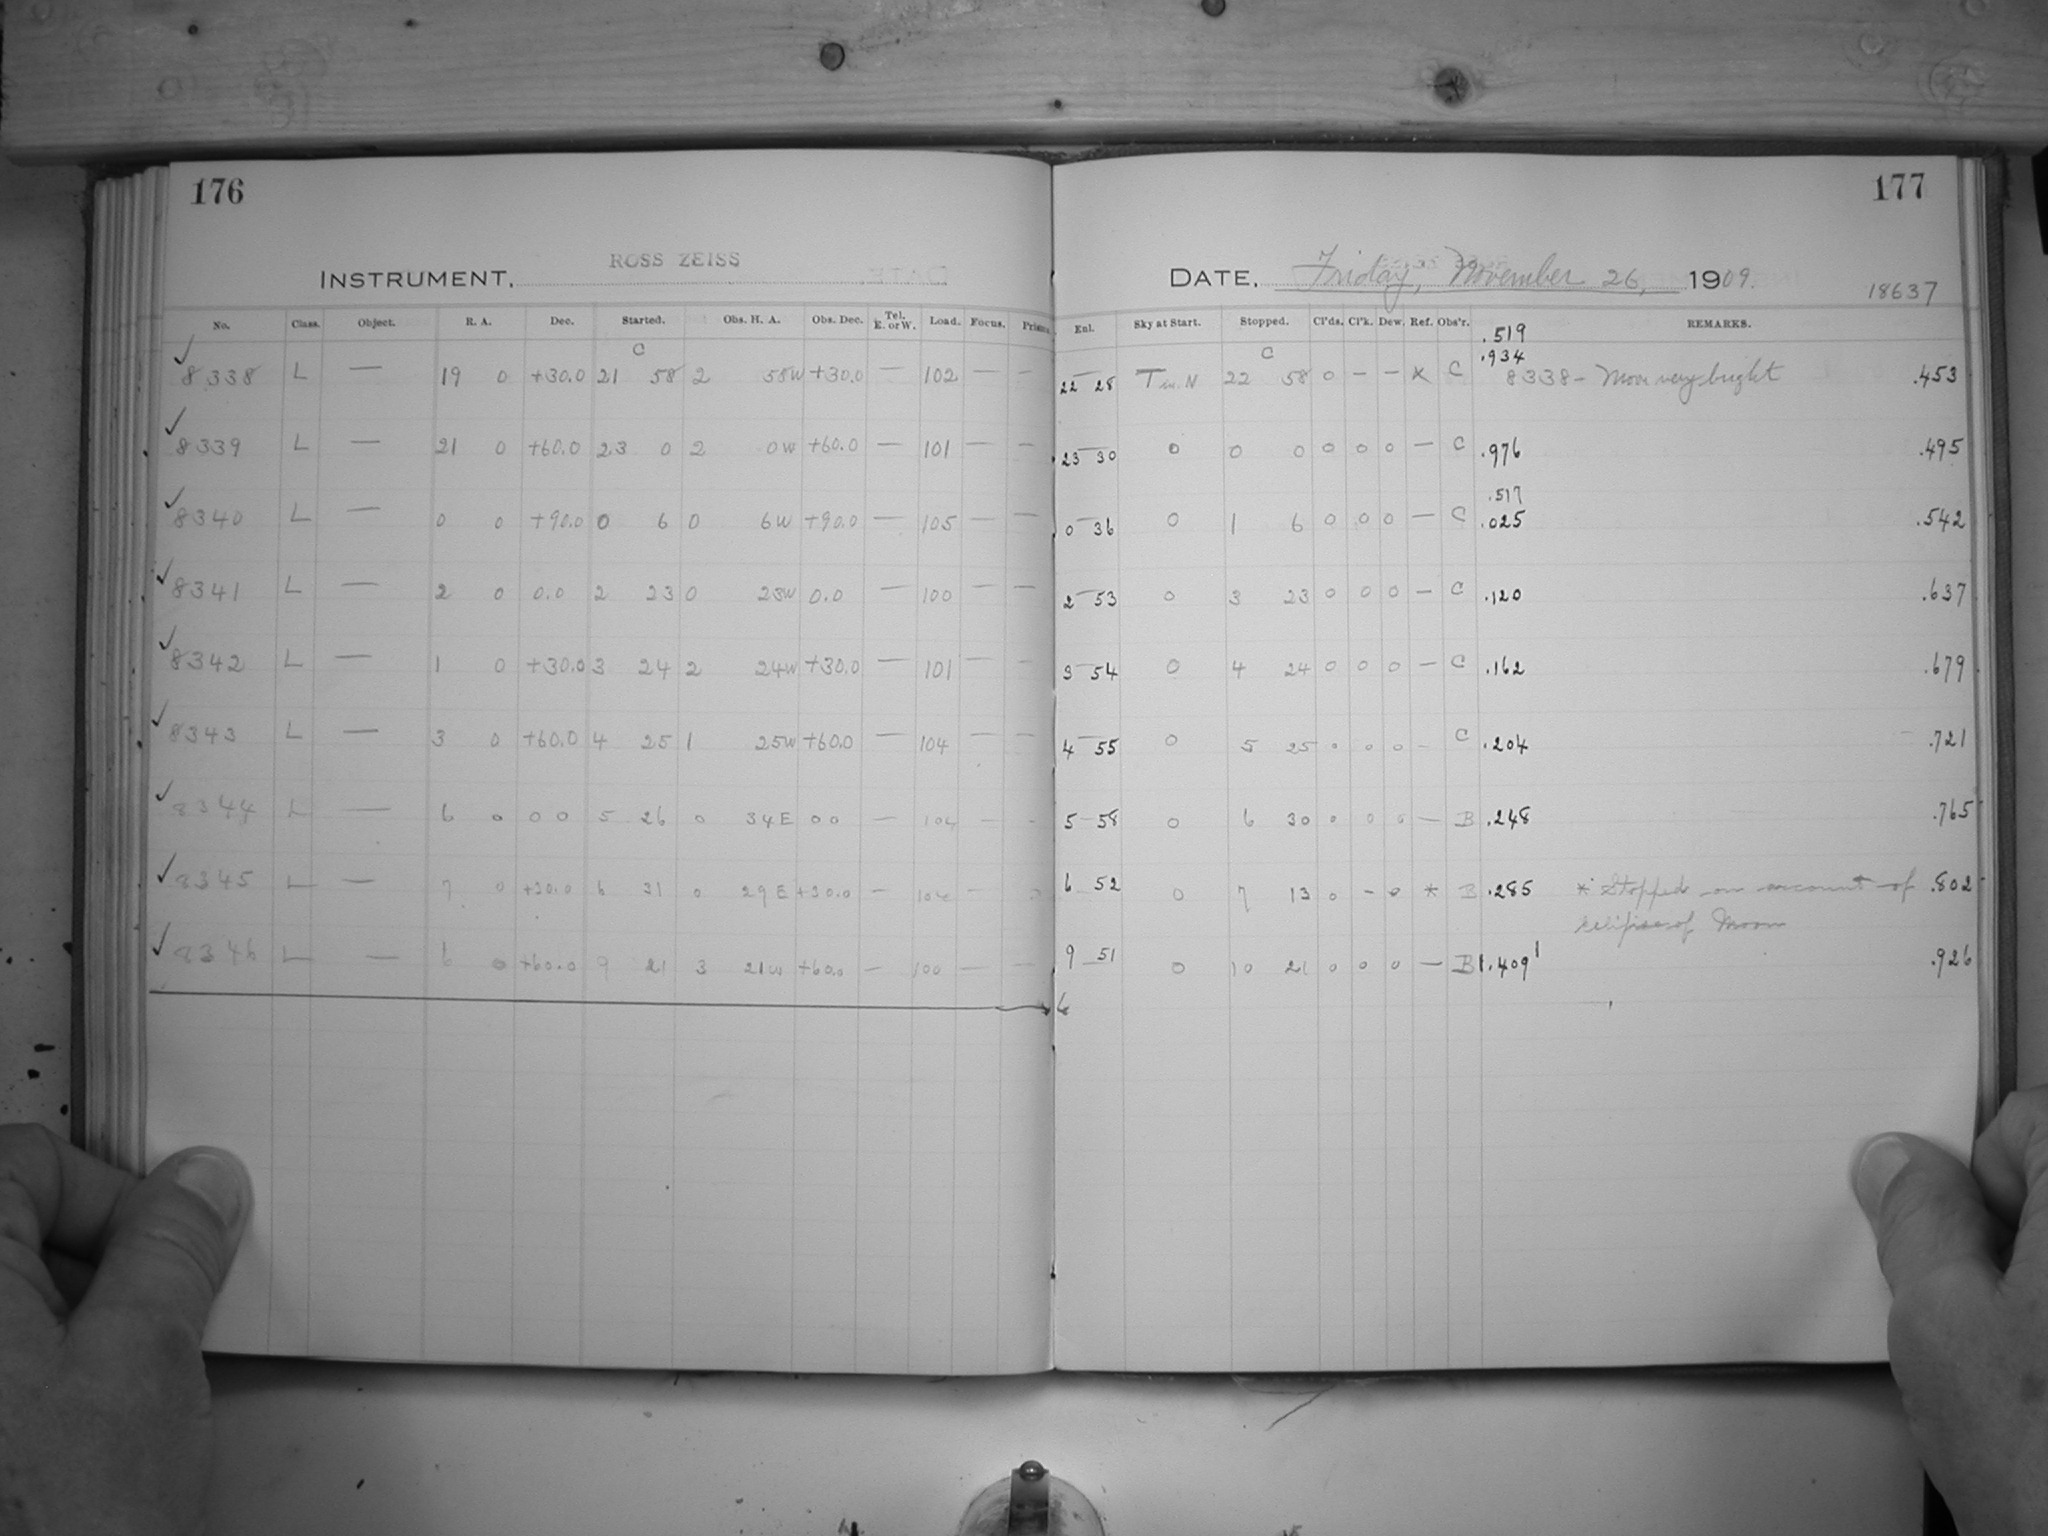 176
177
INSTRUMENT, ROSS ZEISS
DATE, Friday, November 26, 1909.
18637
No. Class. Object. R. A. Dec. Started. Obs. H. A. Obs. Dec. Tel. E. or W. Load. Focus. Prisms. Enl. Sky at Start. Stopped. Cl'ds. Cl'k. Dew. Ref. Obs'r. REMARKS.
.519
C C .934
✓ 8338 L — 19 0 +30.0 21 58 2 58W +30.0 — 102 — — 22 28 T in N 22 58 0 — — X C 8338 – Moon very bright .453
✓ 8339 L — 21 0 +60.0 23 0 2 0W +60.0 — 101 — — 23 30 0 0 0 0 0 0 — C .976 .495
.517
✓ 8340 L — 0 0 +90.0 0 6 0 6W +90.0 — 105 — — 0 36 0 1 6 0 0 0 — C .025 .542
✓ 8341 L — 2 0 0.0 2 23 0 23W 0.0 — 100 — — 2 53 0 3 23 0 0 0 — C .120 .637
✓ 8342 L — 1 0 +30.0 3 24 2 24W +30.0 — 101 — — 3 54 0 4 24 0 0 0 — C .162 .679
✓ 8343 L — 3 0 +60.0 4 25 1 25W +60.0 — 104 — — 4 55 0 5 25 0 0 0 - C .204 .721
✓ 8344 L — 6 0 0 0 5 26 0 34E 0 0 — 104 — - 5 58 0 6 30 0 0 0 — B .248 .765
✓ 8345 L — 7 0 +30.0 6 31 0 29E +30.0 — 104 — 6 52 0 7 13 0 - 0 * B .285 * Stopped on account of .802
eclipse of Moon
✓ 8346 L — 6 0 +60.0 9 21 3 21W +60.0 — 100 — — 9 51 0 10 21 0 0 0 — B 1.409 .926